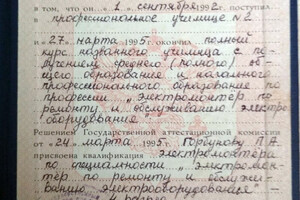 в том, что он „1" сентября 1992г. поступил
в профессиональное училище №2
и „27" марта 1995г. окончил полный
курс названного училища с по-
лучением среднего (полного) об-
щего образования и начального
профессионального образования по
профессии „Электромонтёр по
ремонту и обслуживанию электро
оборудования"
Решением Государственной аттестационной комиссии
от „24" марта 1995г. Горбунову П.А.
присвоена квалификация электромонтёра
по специальности „электромон-
тёр по ремонту и обслужи-
ванию электрооборудования" -